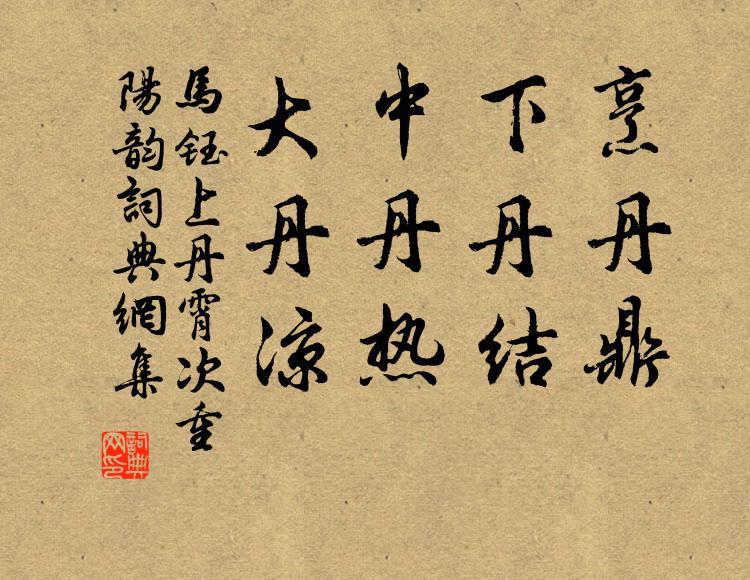 烹丹鼎
下丹結
中丹热
大丹凉
馬鈺上丹霄次重
陽韵詞典網集
詞典网印